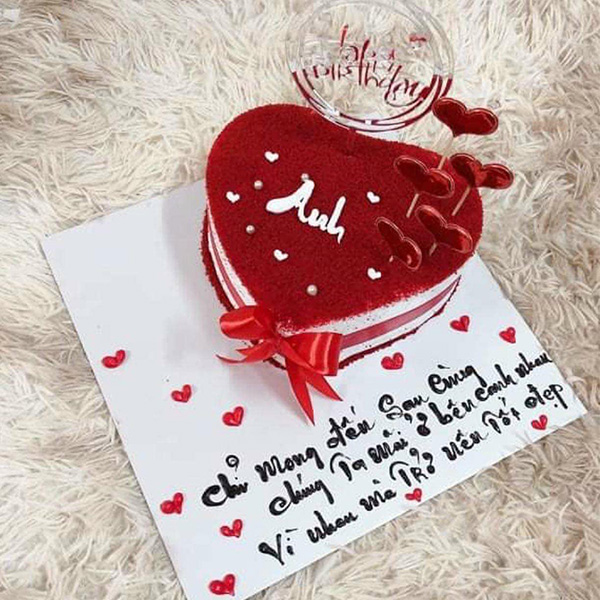 Happy
Birthday
Anh
Chỉ mong đến Sau Cùng
chúng Ta Mãi ở bên cạnh nhau
Vì nhau mà Trở nên Tốt đẹp